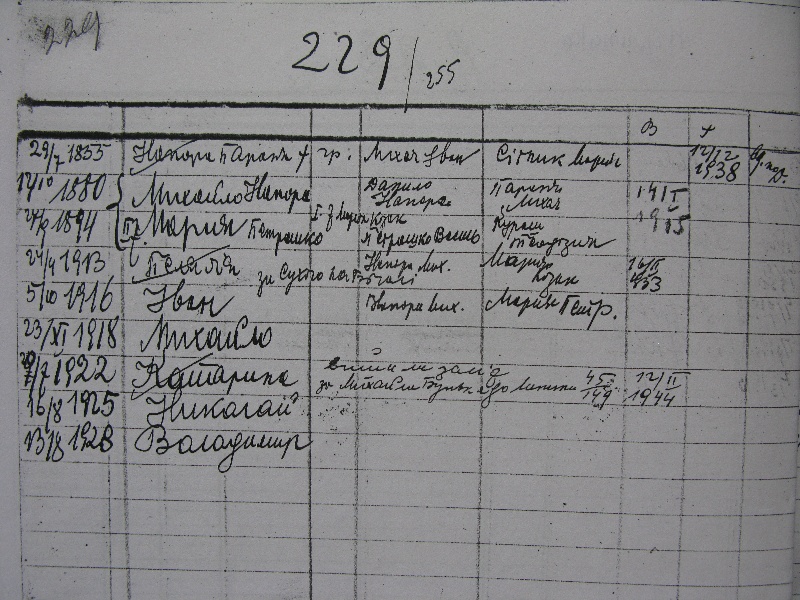 229
229/255
В †
29/7 1855 Напора Параня † гр. Михач Іван Сітник Марія 12/12 1938
1880 Михайло Напора Данило Напора Параня Михач 14/II
1894 II Марія Петрашко I. з Марія Козак Петрашко Василь Теодозия 1915
24/4 1913 Пелагія за Сухого Напора Мих. Марія Козак 16/II 1933
5/III 1916 Іван Напора Мих. Марія Петр.
23/XI 1918 Михайло
1922 Катарина вийшла заміж
за Михайла 453/149 12/II 1944
16/8 1925 Николай
23/8 1928 Володимир